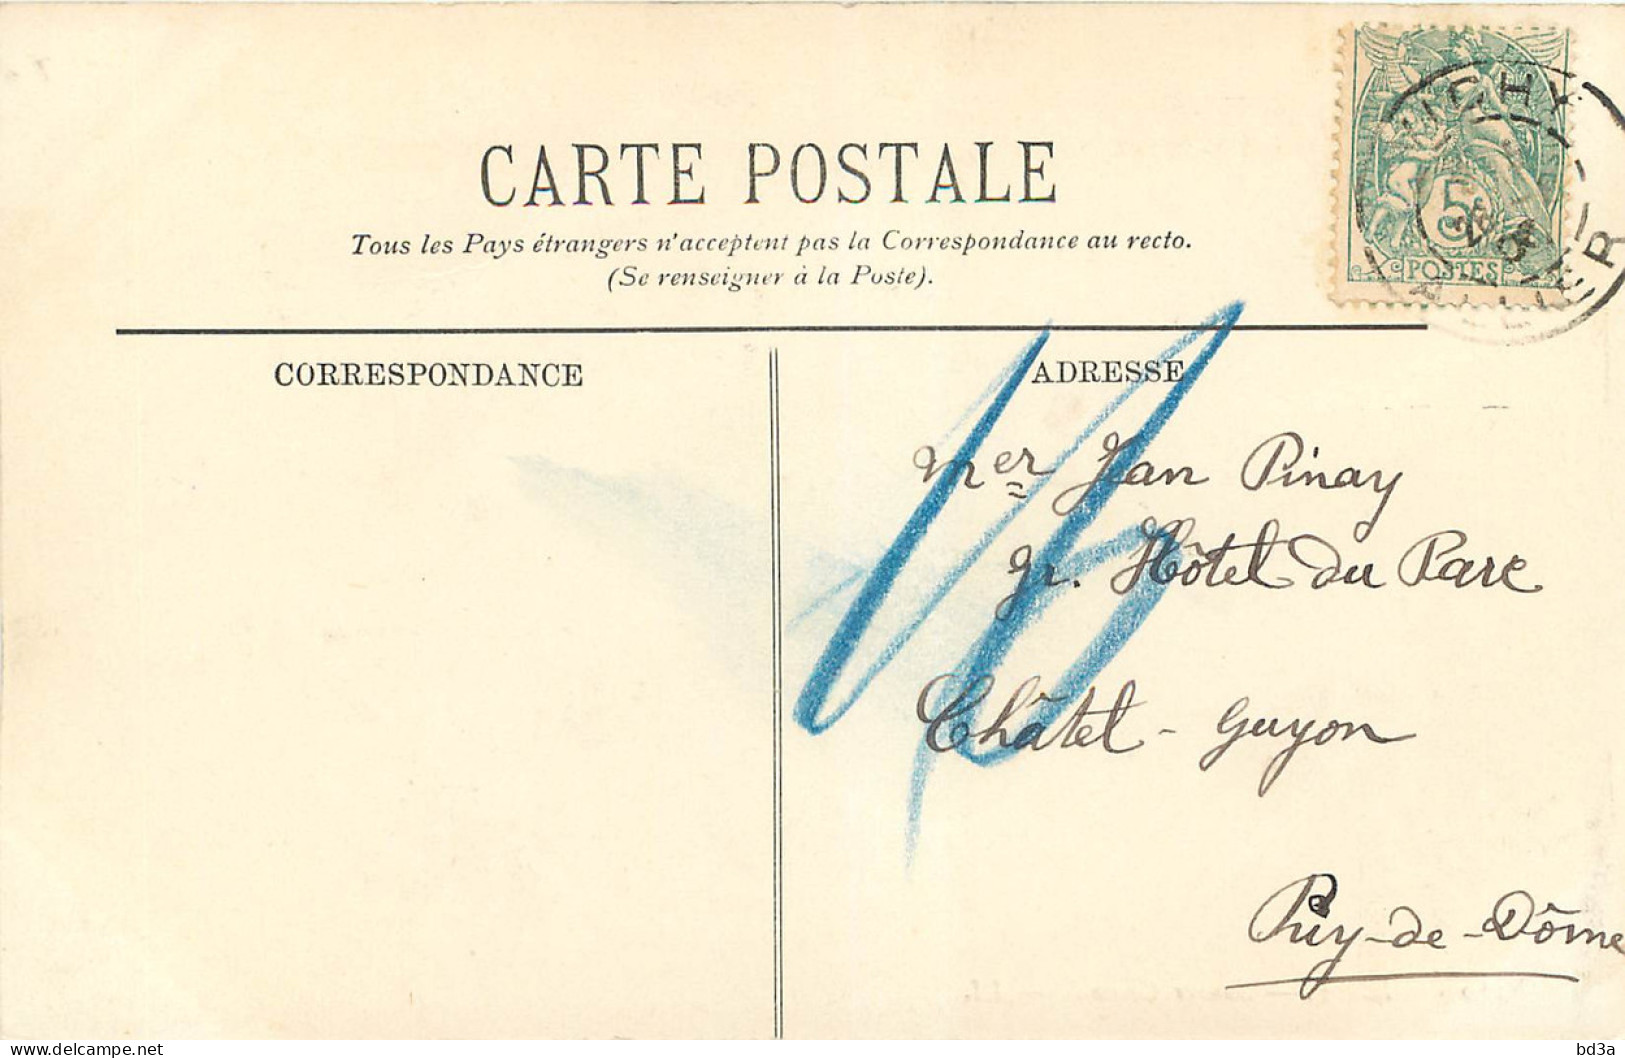 CARTE POSTALE
Tous les Pays étrangers n'acceptent pas la Correspondance au recto.
(Se renseigner à la Poste).
5c
POSTES
VICHY
ALLIER
CORRESPONDANCE
ADRESSE
16
Mer Jean Pinay
gr. Hôtel du Parc
Châtel-Guyon
Puy-de-Dôme
delcampe.net
bd3a